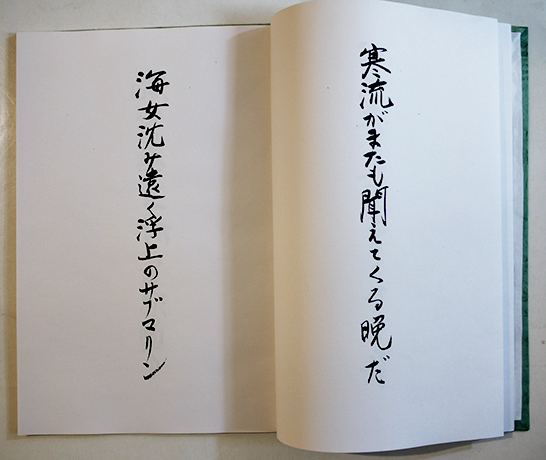 寒流がまたも聞えてくる晩だ
海女沈み遠く浮上のサブマリン